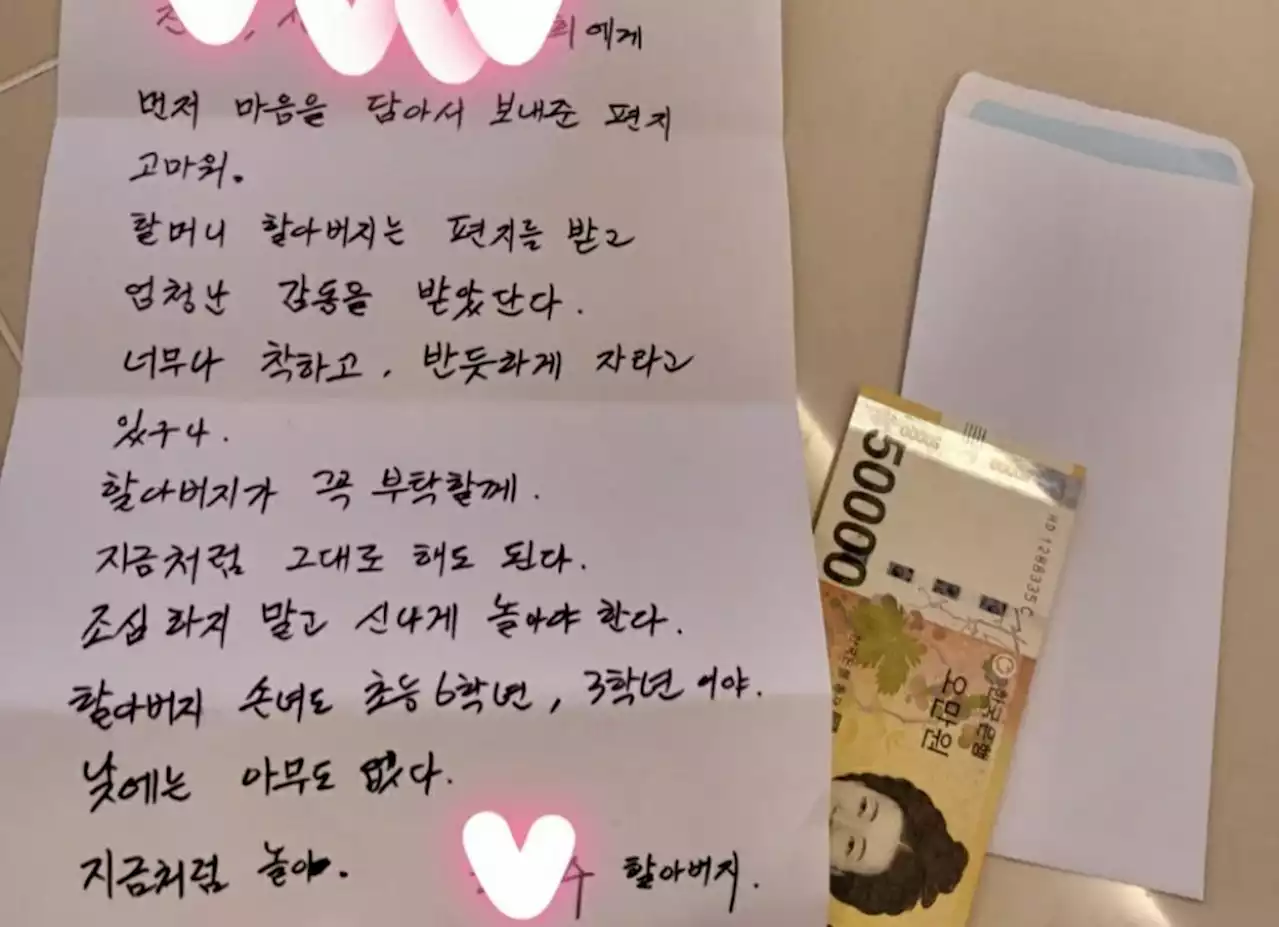 희에게
먼저 마음을 담아서 보내준 편지
고마워.
할머니 할아버지는 편지를 받고
엄청난 감동을 받았단다.
너무나 착하고, 반듯하게 자라고
있구나.
할아버지가 꼭 부탁할께.
지금처럼 그대로 해도 된다.
조심하지 말고 신나게 놀아야 한다.
할아버지 손녀도 초등6학년, 3학년이야.
낮에는 아무도 없다.
지금처럼 놀아.
수 할아버지.
50000
오만원
한국은행